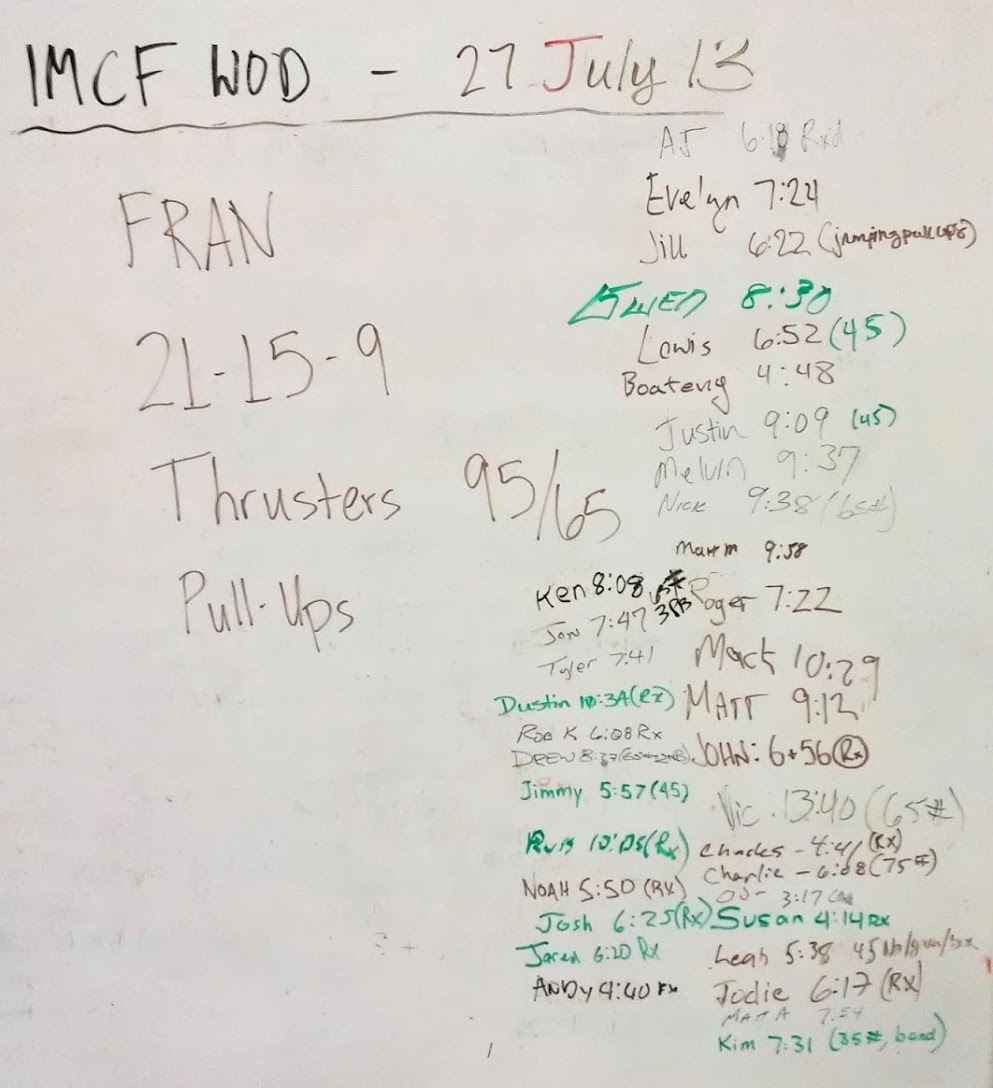 IMCF WOD - 27 July 13
FRAN
21-15-9
Thrusters 95/65
Pull-Ups
AJ 6:18 Rxd
Evelyn 7:24
Jill 6:22 (jumping pull ups)
GWEN 8:30
Lewis 6:52 (45)
Boateng 4:48
Justin 9:09 (45)
Melvin 9:37
Nick 9:38 (65#)
Matt m 9:58
Ken 8:08
Roger 7:22
Jon 7:47
Tyler 7:41
Mack 10:29
Dustin 10:34 (Rx)
MATT 9:12
Rob K 6:08 Rx
JOHN: 6+56 (Rx)
DREW
Jimmy 5:57 (45)
Vic 13:40 (65#)
10:05 (Rx)
Charles - 4:41 (RX)
Charlie - 6:08 (75#)
NOAH 5:50 (RX)
3:17
Josh 6:25 (Rx)
Susan 4:14 Rx
Jared 6:20 Rx
Leah 5:38 45
ANDY 4:40 RX
Jodie 6:17 (RX)
MATT A 7:54
Kim 7:31 (35#, band)